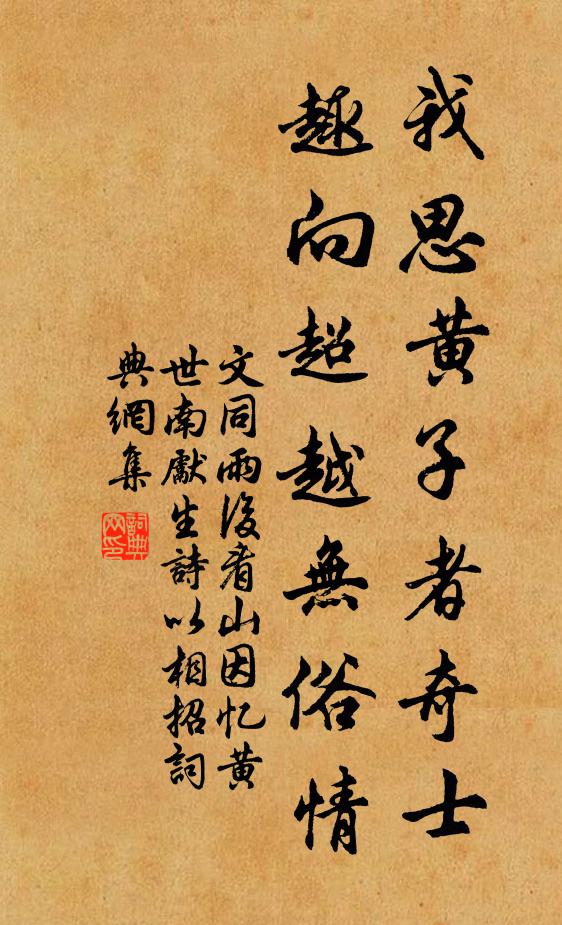 我思黄子者奇士
趣向超越無俗情
文同雨後看山因忆黄
世南獻生詩以相招詞
典網集
詞典網印